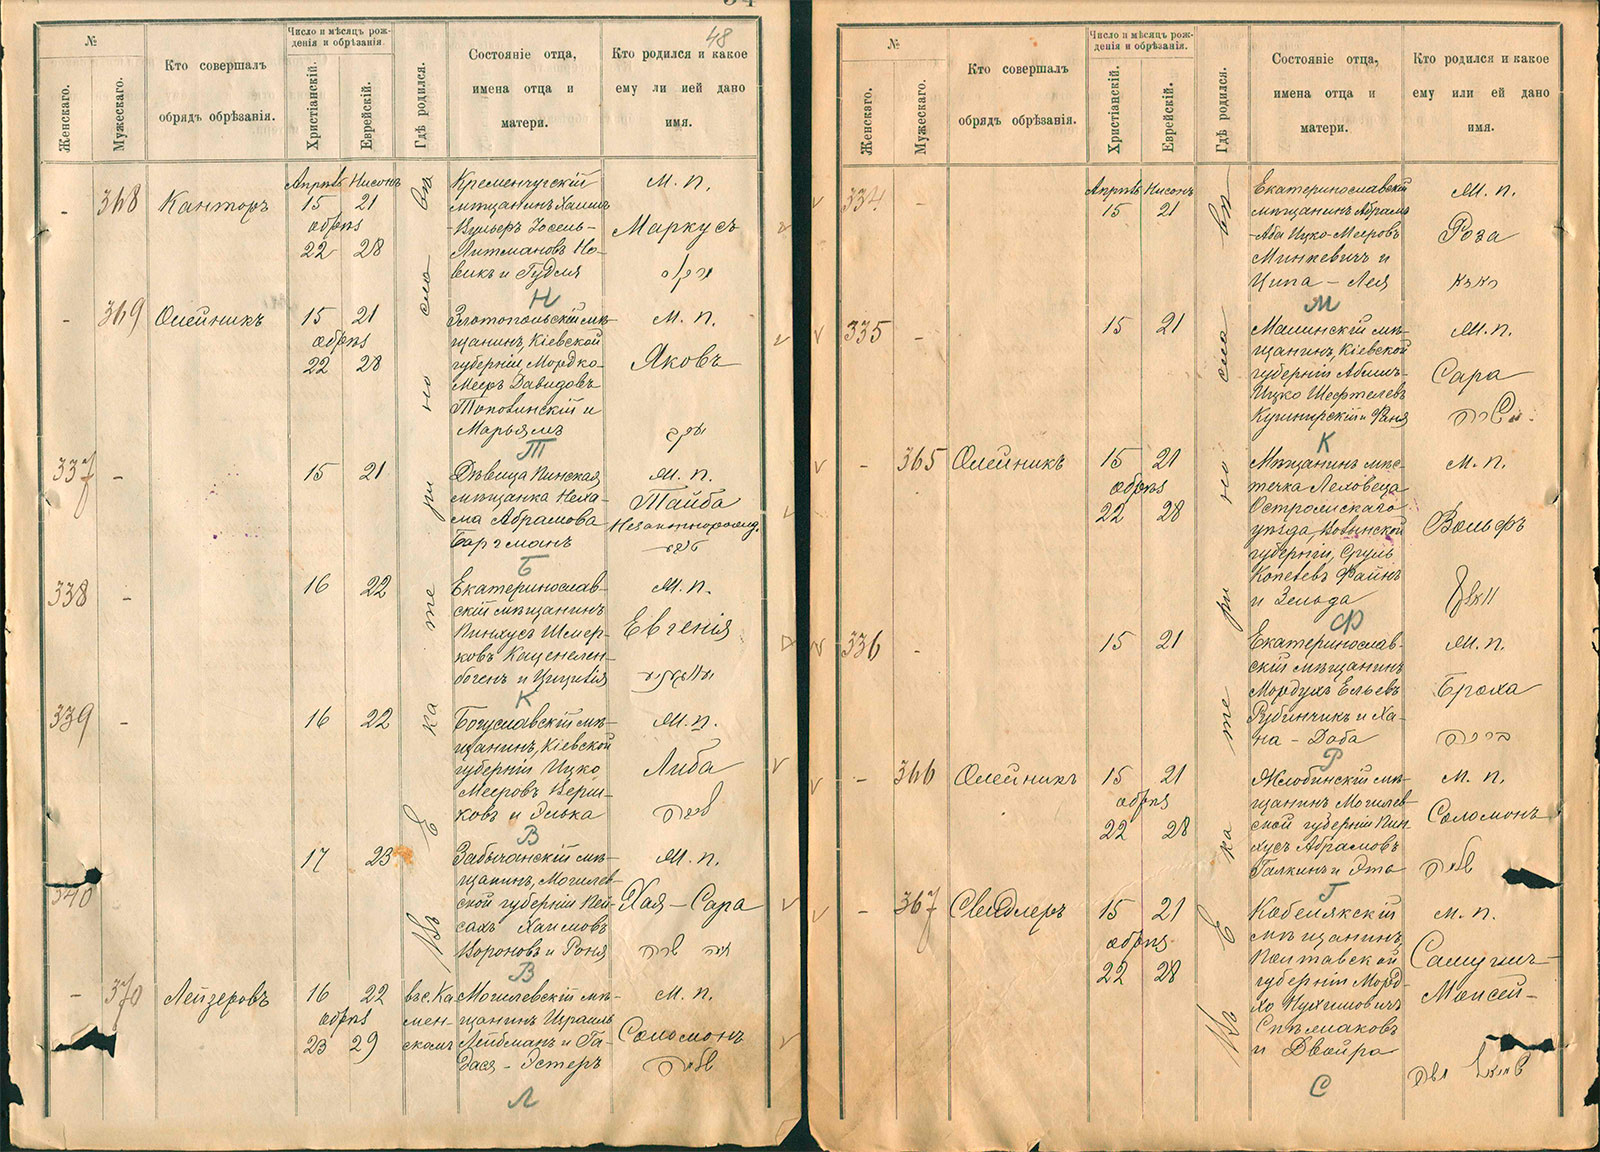 48
№
Женскаго.
Мужескаго.
Кто совершалъ
обрядъ обрѣзанія.
Число и мѣсяцъ рож-
денія и обрѣзанія.
Христіанскій.
Еврейскій.
Гдѣ родился.
Состояніе отца,
имена отца и
матери.
Кто родился и какое
ему ли ией дано
имя.
Въ Екатеринославѣ
- 368 Канторъ
Апрѣль Нисонъ
15 21
обрѣз
22 28
Кременчугскій
мѣщанинъ Хаимъ
Вульфъ Іосель-
Литмановъ Но-
викъ и Гудля
Н
М. п.
Маркусъ
- 369 Олейникъ
15 21
обрѣз
22 28
Златопольскій мѣ-
щанинъ, Кіевской
губерніи, Мордко-
Мееръ Давидовъ
Топовинскій и
Марьямъ
Т
М. п.
Яковъ
יעקב
337 -
15 21
Дѣвица Пинская
мѣщанка Неха-
ма Абрамова
Бергманъ
Б
М. п.
Тайба
Незаконнорожд.
338 -
16 22
Екатеринослав-
скій мѣщанинъ
Пинхусъ Шмер-
ковъ Каценелен-
богенъ и Цицилія
К
М. п.
Евгенія
339 -
16 22
Богуславскій мѣ-
щанинъ, Кіевской
губерніи Ицко
Мееровъ Верши-
ковъ и Элька
В
М. п.
Либа
ליבה
340
17 23
Забычанскій мѣ-
щанинъ, Могилев-
ской губерніи Пей-
сахъ Хаимовъ
Вороновъ и Роня
В
М. п.
Хая - Сара
חיה שרה
- 370 Лейзеровъ
16 22
обрѣз
23 29
въ с. Ка
мен-
скомъ
Могилевскій мѣ-
щанинъ Израиль
Лейбманъ и Га-
дася - Эстеръ
Л
М. п.
Соломонъ
שלמה
№
Женскаго.
Мужескаго.
Кто совершалъ
обрядъ обрѣзанія.
Число и мѣсяцъ рож-
денія и обрѣзанія.
Христіанскій.
Еврейскій.
Гдѣ родился.
Состояніе отца,
имена отца и
матери.
Кто родился и какое
ему или ей дано
имя.
Въ Екатеринославѣ
334 -
Апрѣль Нисонъ
15 21
Екатеринославскій
мѣщанинъ Абрамъ
-Аба Ицко-Мееровъ
Минкевичъ и
Ципа - Лея
М
М. п.
Роза
335 -
15 21
Малинскій мѣ-
щанинъ, Кіевской
губерніи Абрамъ-
Ицко Шефтелевъ
Кушнирскій и Фаня
К
М. п.
Сара
שרה
- 365 Олейникъ
15 21
обрѣз
22 28
Мѣщанинъ мѣс-
течка Леховеца
Острожскаго
уѣзда, Волынской
губерніи, Сруль
Копелевъ Файнъ
и Зельда
Ф
М. п.
Вольфъ
וואלף
336 -
15 21
Екатеринослав-
скій мѣщанинъ
Мордухъ Ельевъ
Рубинчикъ и Ха-
на - Доба
Р
М. п.
Броха
ברכה
- 366 Олейникъ
15 21
обрѣз
22 28
Жлобинскій мѣ-
щанинъ Могилев-
ской губерніи Пин-
хусъ Абрамовъ
Галкинъ и Эта
Г
М. п.
Соломонъ
שלמה
- 367 Свидлеръ
15 21
обрѣз
22 28
Кобелякскій
мѣщанинъ,
Полтавской
губерніи Морд-
хо Нухимовичъ
Спѣмаковъ
и Двойра
С
М. п.
Самуилъ-
Моисей-
שמואל משה